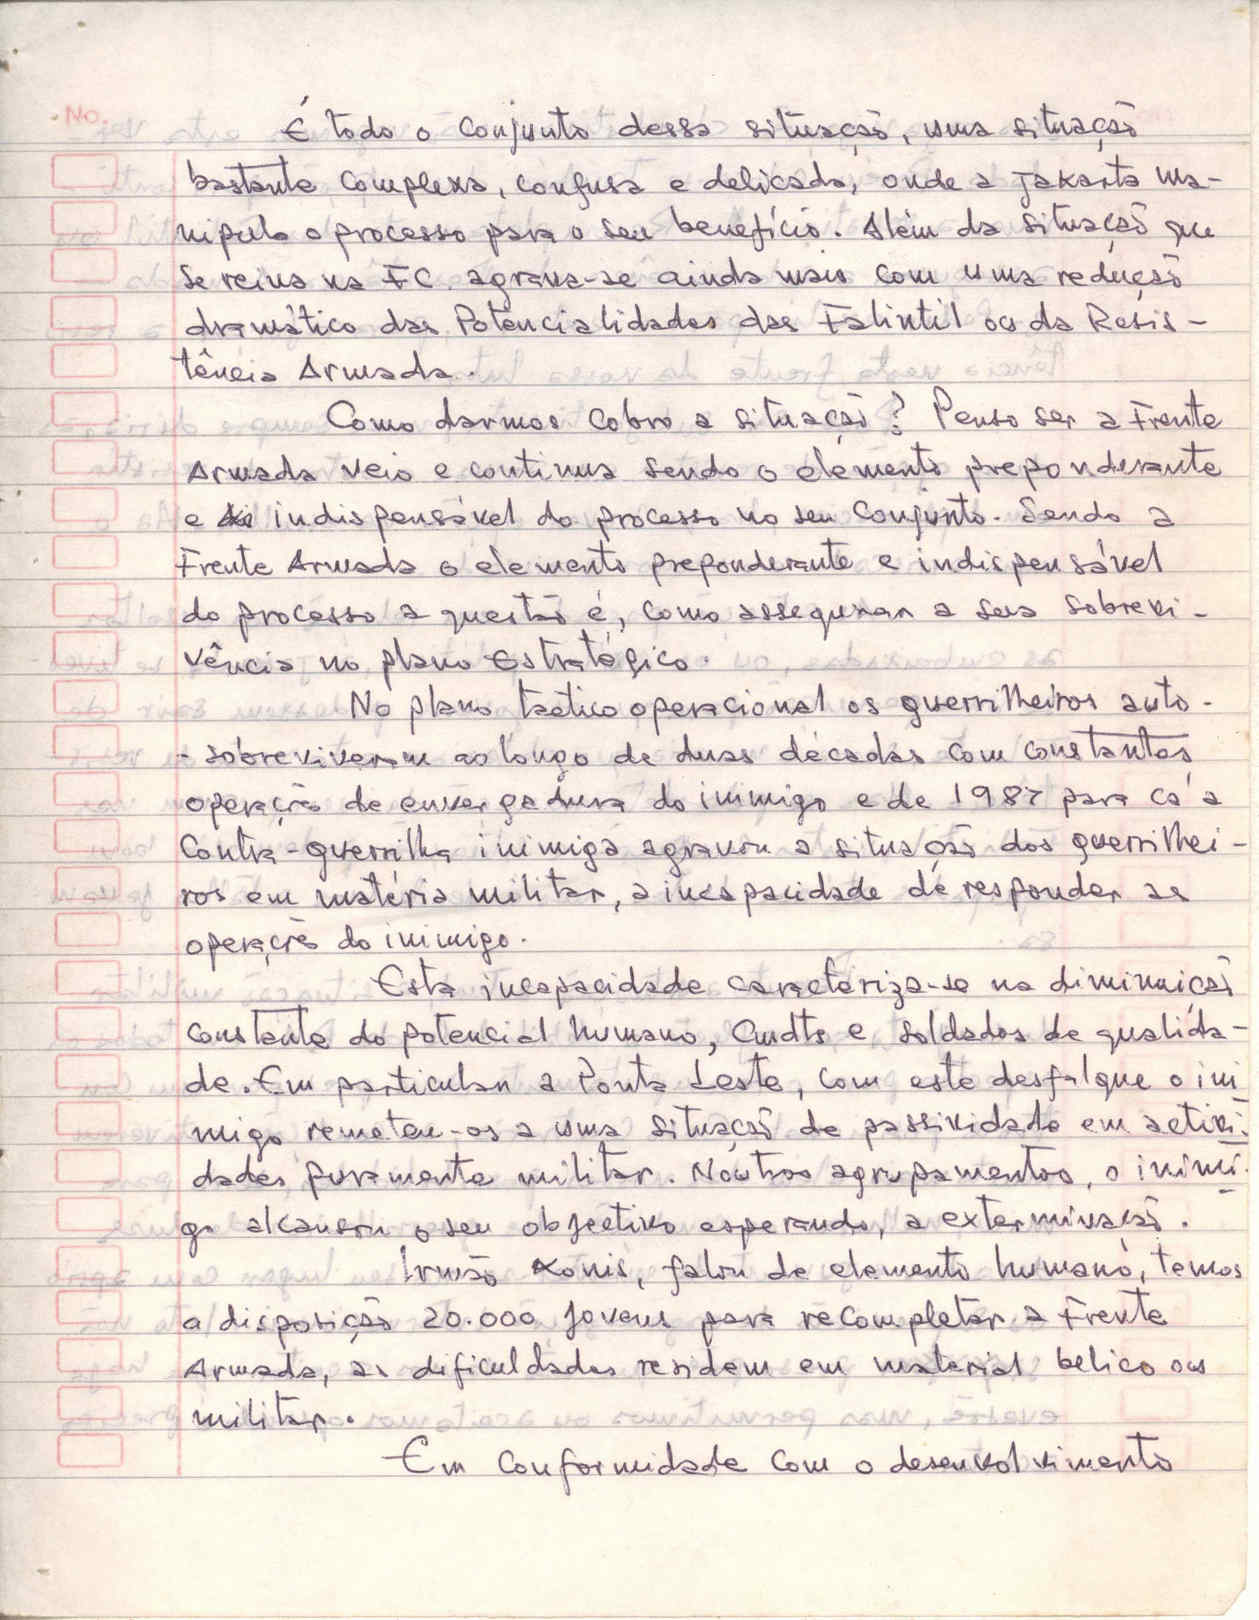 No.
É todo o conjunto dessa situação, uma situação
bastante complexa, confusa e delicada, onde a Jakarta ma-
nipula o processo para o seu benefício. Além da situação que
se reina na FC agrava-se ainda mais com uma redução
dramático das Potencialidades das Falintil ou da Resis-
tência Armada.
Como darmos cobro a situação? Penso ser a Frente
Armada veio e continua sendo o elemento preponderante
e indispensável do processo no seu conjunto. Sendo a
Frente Armada o elemento preponderante e indispensável
do processo a questão é, como assegurar a sua sobrevi-
vência no plano Estratégico.
No plano táctico operacional os guerrilheiros auto-
-sobreviveram ao longo de duas décadas com constantes
operação de envergadura do inimigo e de 1987 para cá a
Contra-guerrilha inimiga agravou a situação dos guerrilhei-
ros em matéria militar, a incapacidade de responder as
operações do inimigo.
Esta incapacidade caracteriza-se na diminuição
constante do potencial humano, Cmdts e soldados de qualida-
de. Em particular a Ponta Leste, com este desfalque o ini
migo remeteu-os a uma situação de passividade em activi-
dades puramente militar. Noutros agrupamentos, o inimi-
go alcansou o seu objectivo esperando, a exterminação.
Irmão Konis, falou de elemento humano, temos
a disposição 20.000 jovens para recompletar a Frente
Armada, as dificuldades residem em material belico ou
militar.
Em conformidade com o desenvolvimento